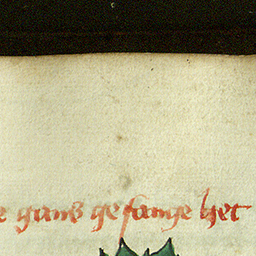 e gans gefange het